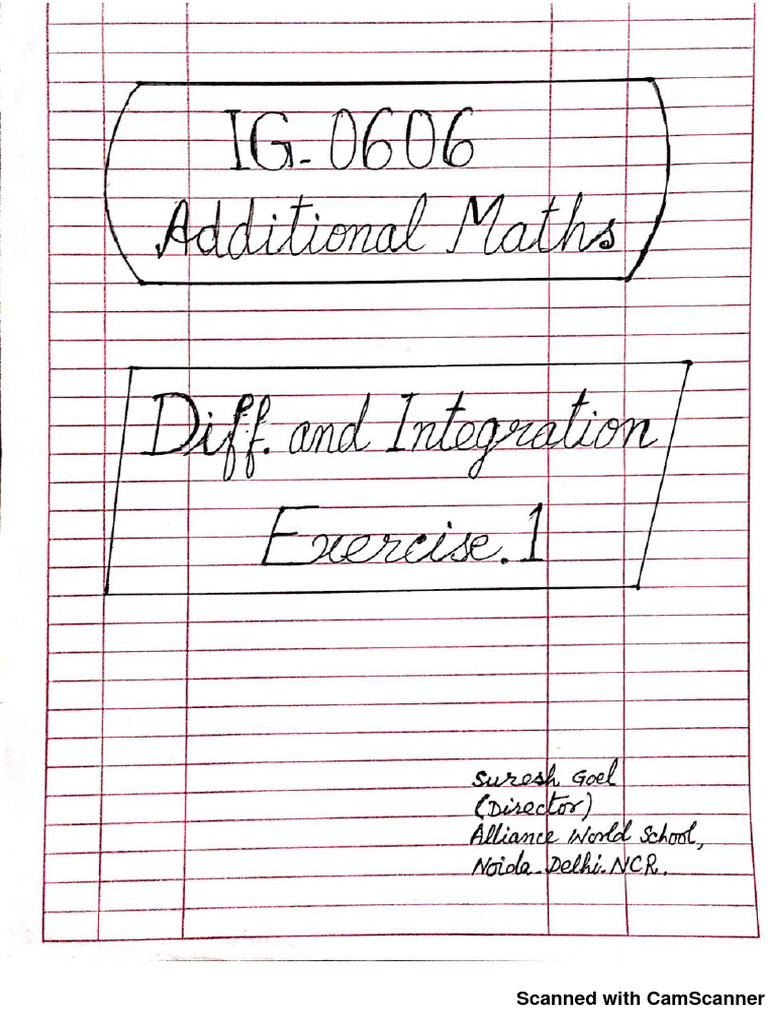 IG-0606
Additional Maths
Diff. and Integration
Exercise.1
Suresh Goel
(Director)
Alliance World School,
Noida-Delhi-NCR.
Scanned with CamScanner